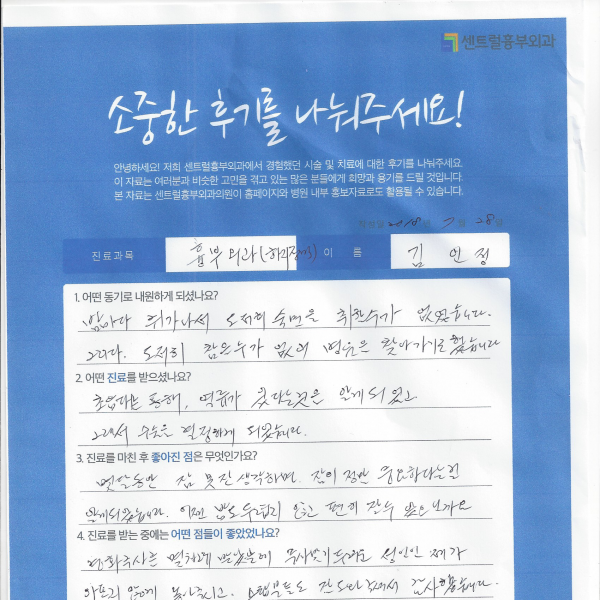 센트럴흉부외과
소중한 후기를 나눠주세요!
안녕하세요! 저희 센트럴흉부외과에서 경험했던 시술 및 치료에 대한 후기를 나눠주세요.
이 자료는 여러분과 비슷한 고민을 겪고 있는 많은 분들에게 희망과 용기를 드릴 것입니다.
본 자료는 센트럴흉부외과의원이 홈페이지와 병원 내부 홍보자료로도 활용될 수 있습니다.
2018년 7월 28일
진료과목 흉부외과(하지정맥) 이 름 김인정
1. 어떤 동기로 내원하게 되셨나요?
밤마다 쥐가나서 도저히 숙면을 취할수가 없었습니다.
그러다. 도저히 참을수가 없어 병원을 찾아가기로 했습니다
2. 어떤 진료를 받으셨나요?
초음파를 통해, 역류가 된다는것을 알게되었고
그래서 수술을 결정하게 되었습니다.
3. 진료를 마친 후 좋아진 점은 무엇인가요?
몇달동안 잠 못잔 생각하면. 잠이 정말 중요하다는걸
알게되었습니다. 이젠 밤도 두렵지 않고 편히 잘수 있으니까요
4. 진료를 받는 중에는 어떤 점들이 좋았었나요?
마취주사는 몇차례 맞았는데
아프지 않게 놓아주시고. 스텝분들도 감사했습니다.